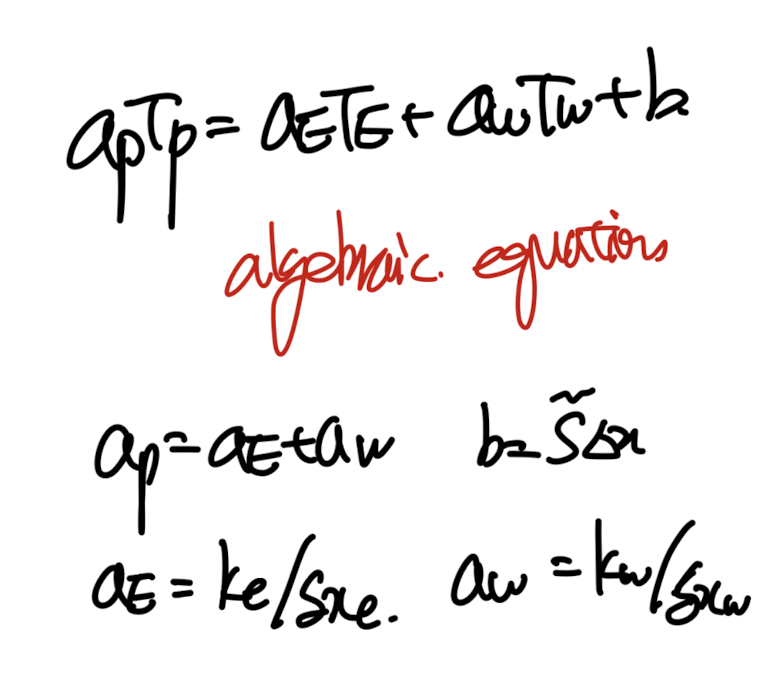 aₚTₚ = a_E T_E + a_w T_w + b
algebraic. equations
aₚ = a_E + a_w    b = S̃Δx
a_E = k_e/δx_e.    a_w = k_w/δx_w